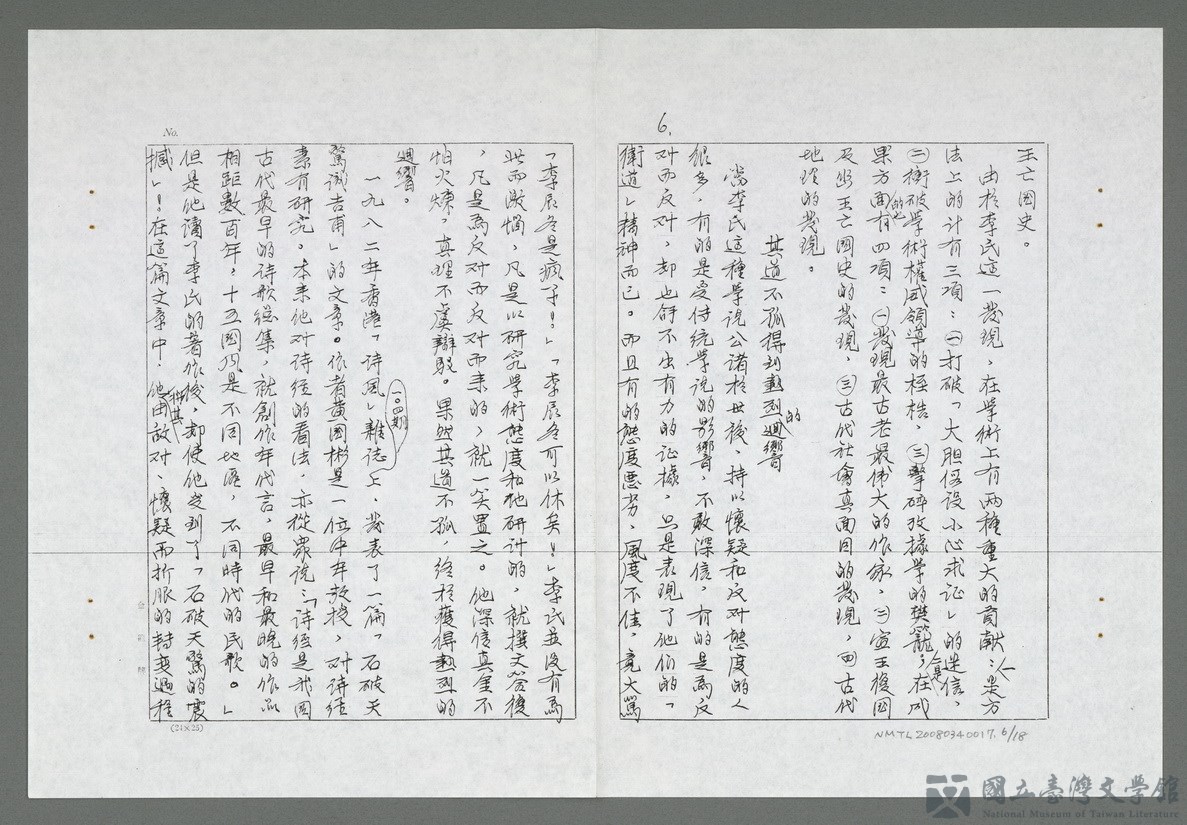 6.
王亡國史。
由於李氏這一發現，在學術上有兩種重大的貢獻：一是方
法上的計有三項：㈠打破「大胆假設小心求证」的迷信，
㈡衝破學術權威領導的桎梏，㈢擊碎攷據學的樊籠；二是在成
果方面的也有四項：㈠發現最古老最偉大的作家，㈡宣王後國
及幽王亡國史的發現，㈢古代社會真面目的發現，㈣古代
地理的發現。
其道不孤得到熱烈的迴響
當李氏這種學说公諸於世後，持以懷疑和反对態度的人
很多，有的是受传統學说的影響，不敢深信，有的是為反
对而反对，却也舒不出有力的证據，只是表現了他们的「
衛道」精神而已。而且有的態度惡劣，風度不佳，竟大罵
No.
「李辰冬是疯子！」「李辰冬可以休矣！」李氏並没有為
此而激惱，凡是以研究學術態度和他研讨的，就撰文答復
，凡是為反对而反对而来的，就一笑置之。他深信真金不
怕火煉，真理不虞辯駁。果然其道不孤，终於獲得熱烈的
迴響。
一九八二年香港「诗風」雜誌一〇四期上，发表了一篇「石破天
驚诚吉甫」的文章。作者黄國彬是一位中年教授，对诗经
素有研究。本来他对诗經的看法，亦從眾说：「诗經是我国
古代最早的诗歌總集，就創作年代言，最早和最晚的作品
相距數百年，十五國风是不同地區，不同時代的民歌。」
但是他讀了李氏的著作後，却使他受到了「石破天驚的震
撼」！在這篇文章中，他將其由敵对、懷疑而折服的转变過程
(24×25)
NMTL20080340017.6/18
國立臺灣文學館
National Museum of Taiwan Literature